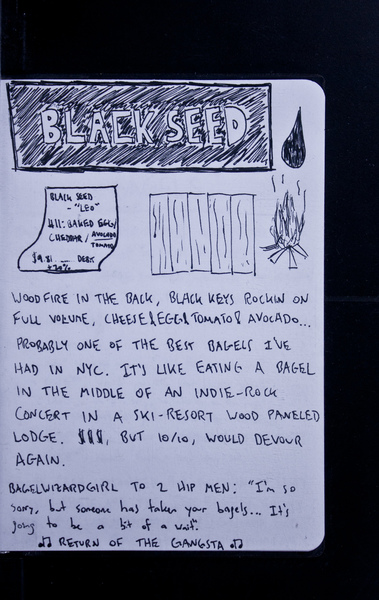 BLACK SEED
BLACK SEED
- "LEO"
#11: BAKED EGGS/
CHEDDAR / AVOCADO/
TOMATO
$9.81 — DEBT
+20%
WOODFIRE IN THE BACK, BLACK KEYS ROCKIN ON
FULL VOLUME, CHEESE & EGG & TOMATO & AVOCADO...
PROBABLY ONE OF THE BEST BAGELS I'VE
HAD IN NYC. IT'S LIKE EATING A BAGEL
IN THE MIDDLE OF AN INDIE-ROCK
CONCERT IN A SKI-RESORT WOOD PANELED
LODGE. $$$, BUT 10/10, WOULD DEVOUR
AGAIN.
BAGELWIZARDGIRL TO 2 HIP MEN: "I'm so
sorry, but someone has taken your bagels... It's
going to be a bit of a wait".
♫ RETURN OF THE GANGSTA ♫